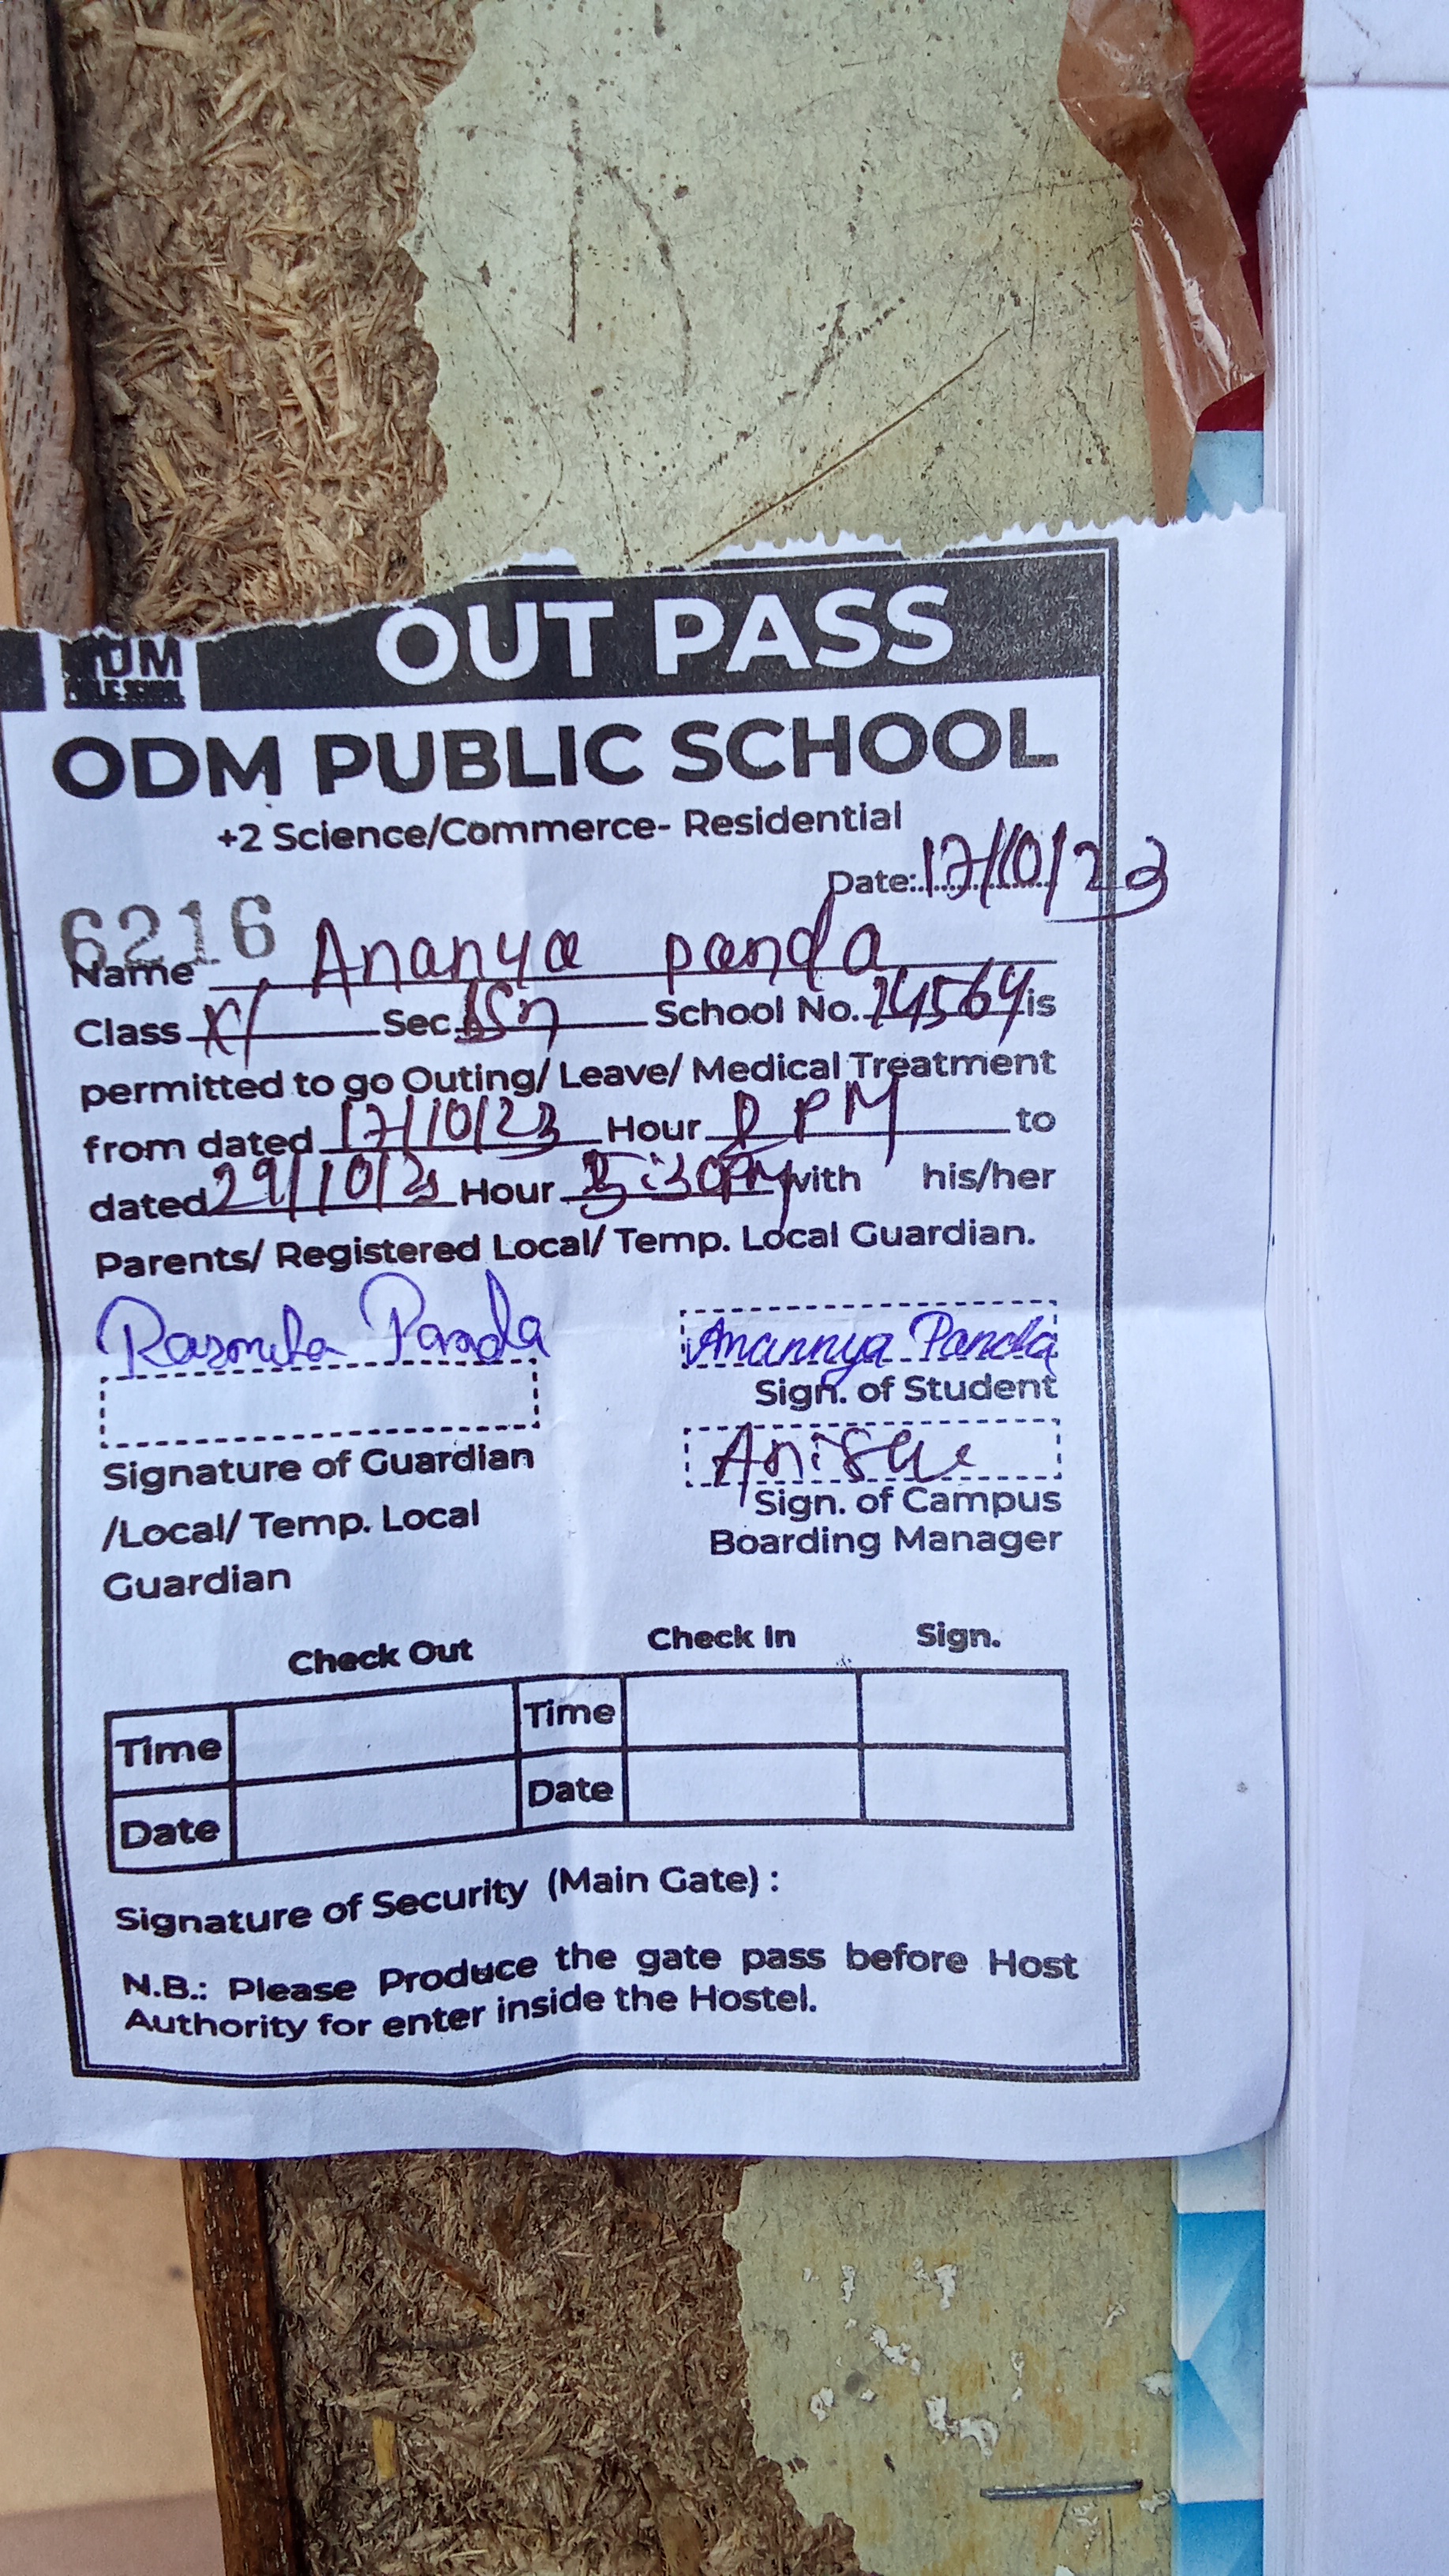 OUT PASS
ODM PUBLIC SCHOOL
ODM PUBLIC SCHOOL
+2 Science/Commerce- Residential
Date:17/10/23
6216
Name Ananya panda
Class XI Sec School No. 24564 is
permitted to go Outing/ Leave/ Medical Treatment
from dated 17/10/23 Hour 2 PM to
dated 29/10/23 Hour 5:30PM with his/her
Parents/ Registered Local/ Temp. Local Guardian.
Panda
Anannya Panda
Sign. of Student
Signature of Guardian
/Local/ Temp. Local
Guardian
Sign. of Campus
Boarding Manager
Check Out Check In Sign.
Time Time
Date Date
Signature of Security (Main Gate) :
N.B.: Please Produce the gate pass before Host
Authority for enter inside the Hostel.